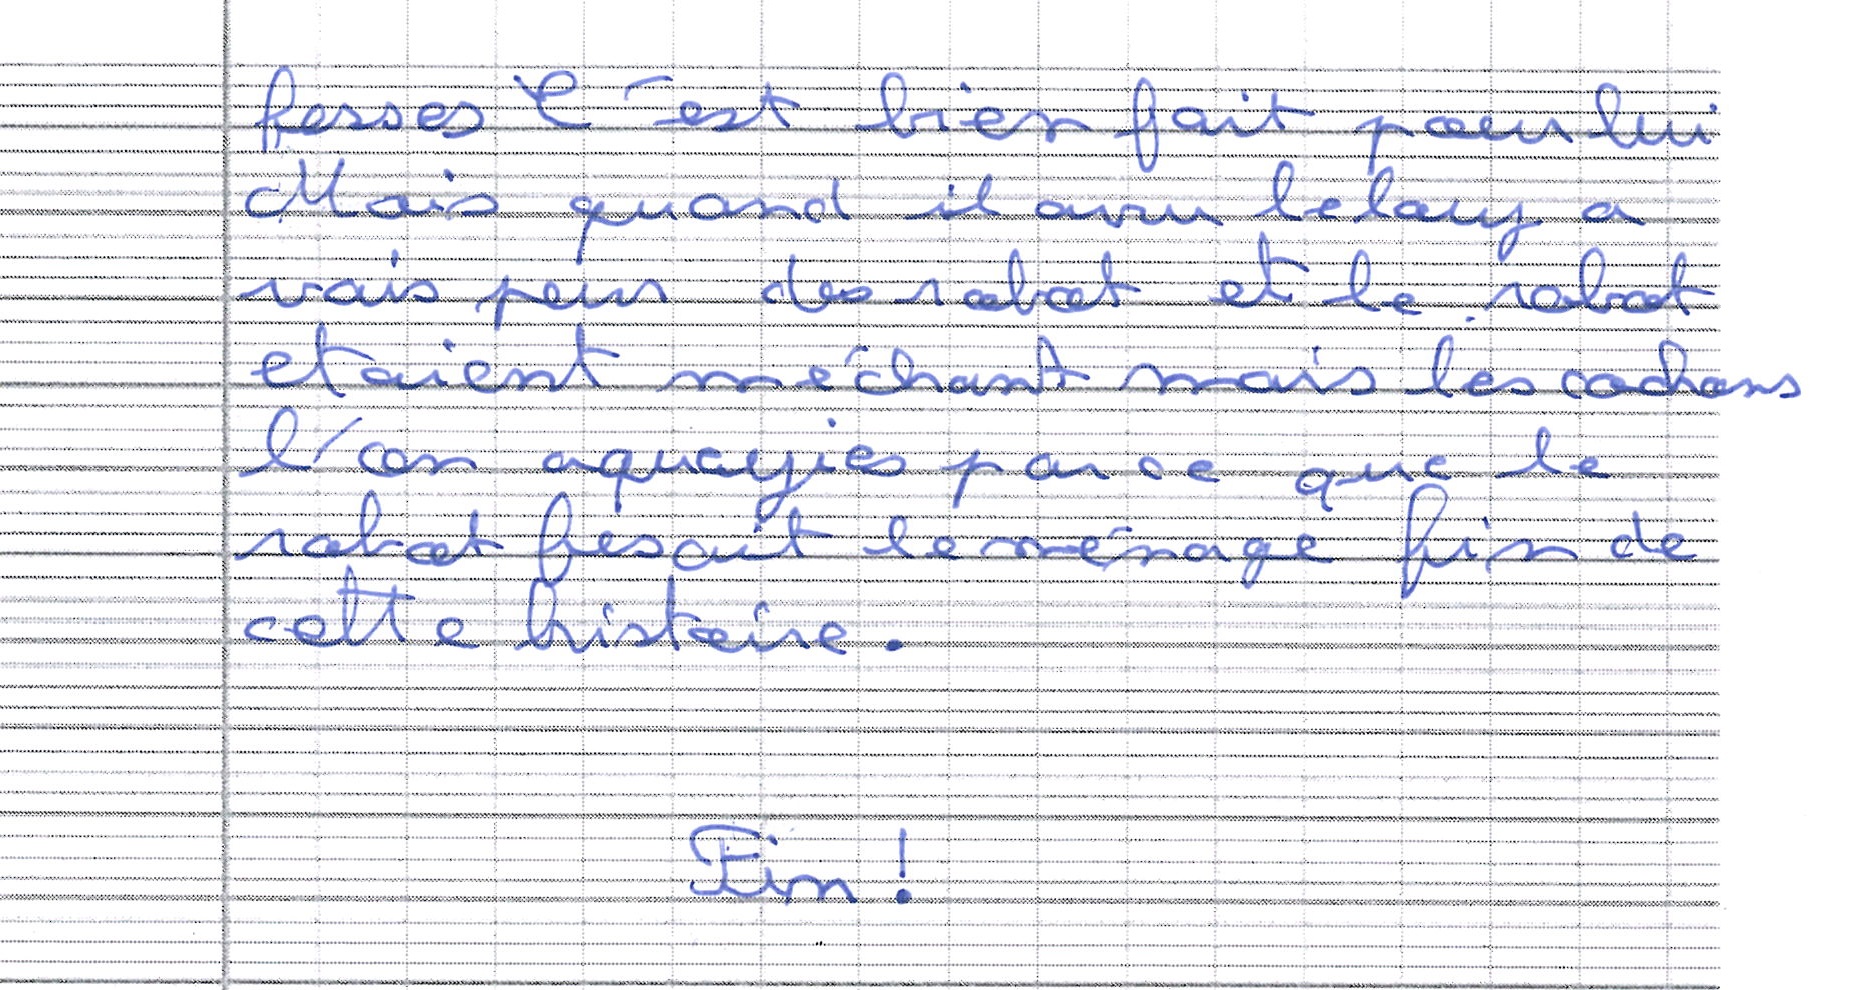 fesses C'est bien fait pour lui
Mais quand il avu le louy a
vais peur des robot et le robot
etaient méchant mais les cochons
l'on aqueyies parce que le
robot fesait le ménage fin de
cette histoire.
Fin !